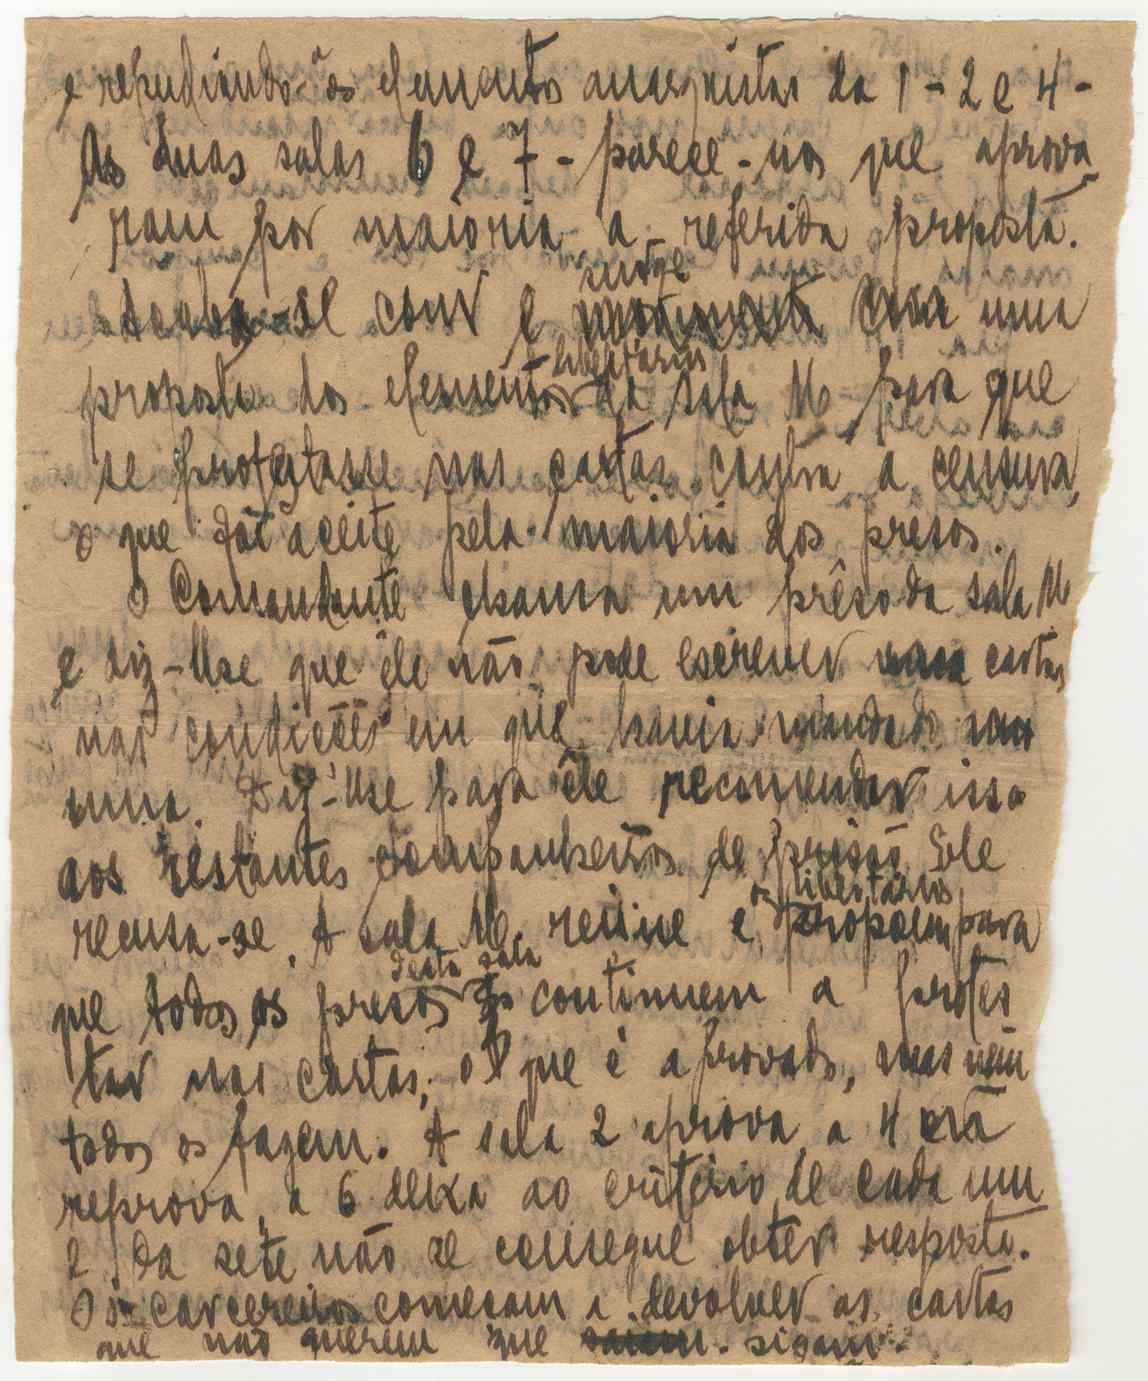 e repudiando os elementos anarquistas da 1 - 2 e 4 -
As duas salas 6 e 7 - parece-nos que aprova
ram por maioria a referida proposta.
surge
Acaba-se com e uma
libertários
proposta dos elementos da sala M para que
se protestasse nas cartas contra a censura,
o que foi aceite pela maioria dos presos.
O Comandante chama um prêso da sala M
e diz-lhe que êle não pode escrever cartas
nas condições em que havia mandado
uma. Diz-lhe para êle recomendar isso
aos restantes companheiros de prisão. Ele
os libertários
recusa-se. A sala M. reúne e propõem para
desta sala
que todos os presos continuem a protes
tar nas cartas, o que é aprovado, mas nem
todos os fazem. A sala 2 aprova, a 4
reprova, a 6 deixa ao critério de cada um
e da sete não se consegue obter resposta.
Os carcereiros começam a devolver as cartas
que não querem que saiam. sigam.